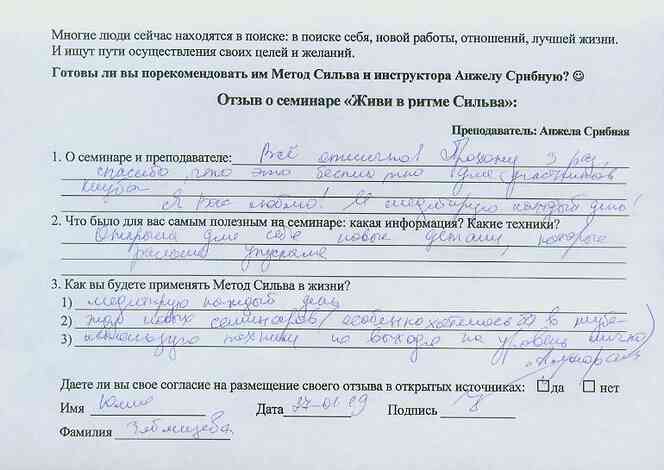 Многие люди сейчас находятся в поиске: в поиске себя, новой работы, отношений, лучшей жизни.
И ищут пути осуществления своих целей и желаний.
Готовы ли вы порекомендовать им Метод Сильва и инструктора Анжелу Срибную? ☺
Отзыв о семинаре «Живи в ритме Сильва»:
Преподаватель: Анжела Срибная
1. О семинаре и преподавателе: Всё отлично! Прохожу 3 раз,
спасибо, что это бесплатно для участников
клуба. Я Вас люблю! И медитирую каждый день!
2. Что было для вас самым полезным на семинаре: какая информация? Какие техники?
Открыла для себя новые детали, которые
раньше упускала
3. Как вы будете применять Метод Сильва в жизни?
1) медитирую каждый день
2) жду новых семинаров, особенно хотелось бы в
3) использую технику по выходе на уровень
Даете ли вы свое согласие на размещение своего отзыва в открытых источниках: да нет
Имя Юлия Дата 27-01-19 Подпись
Фамилия